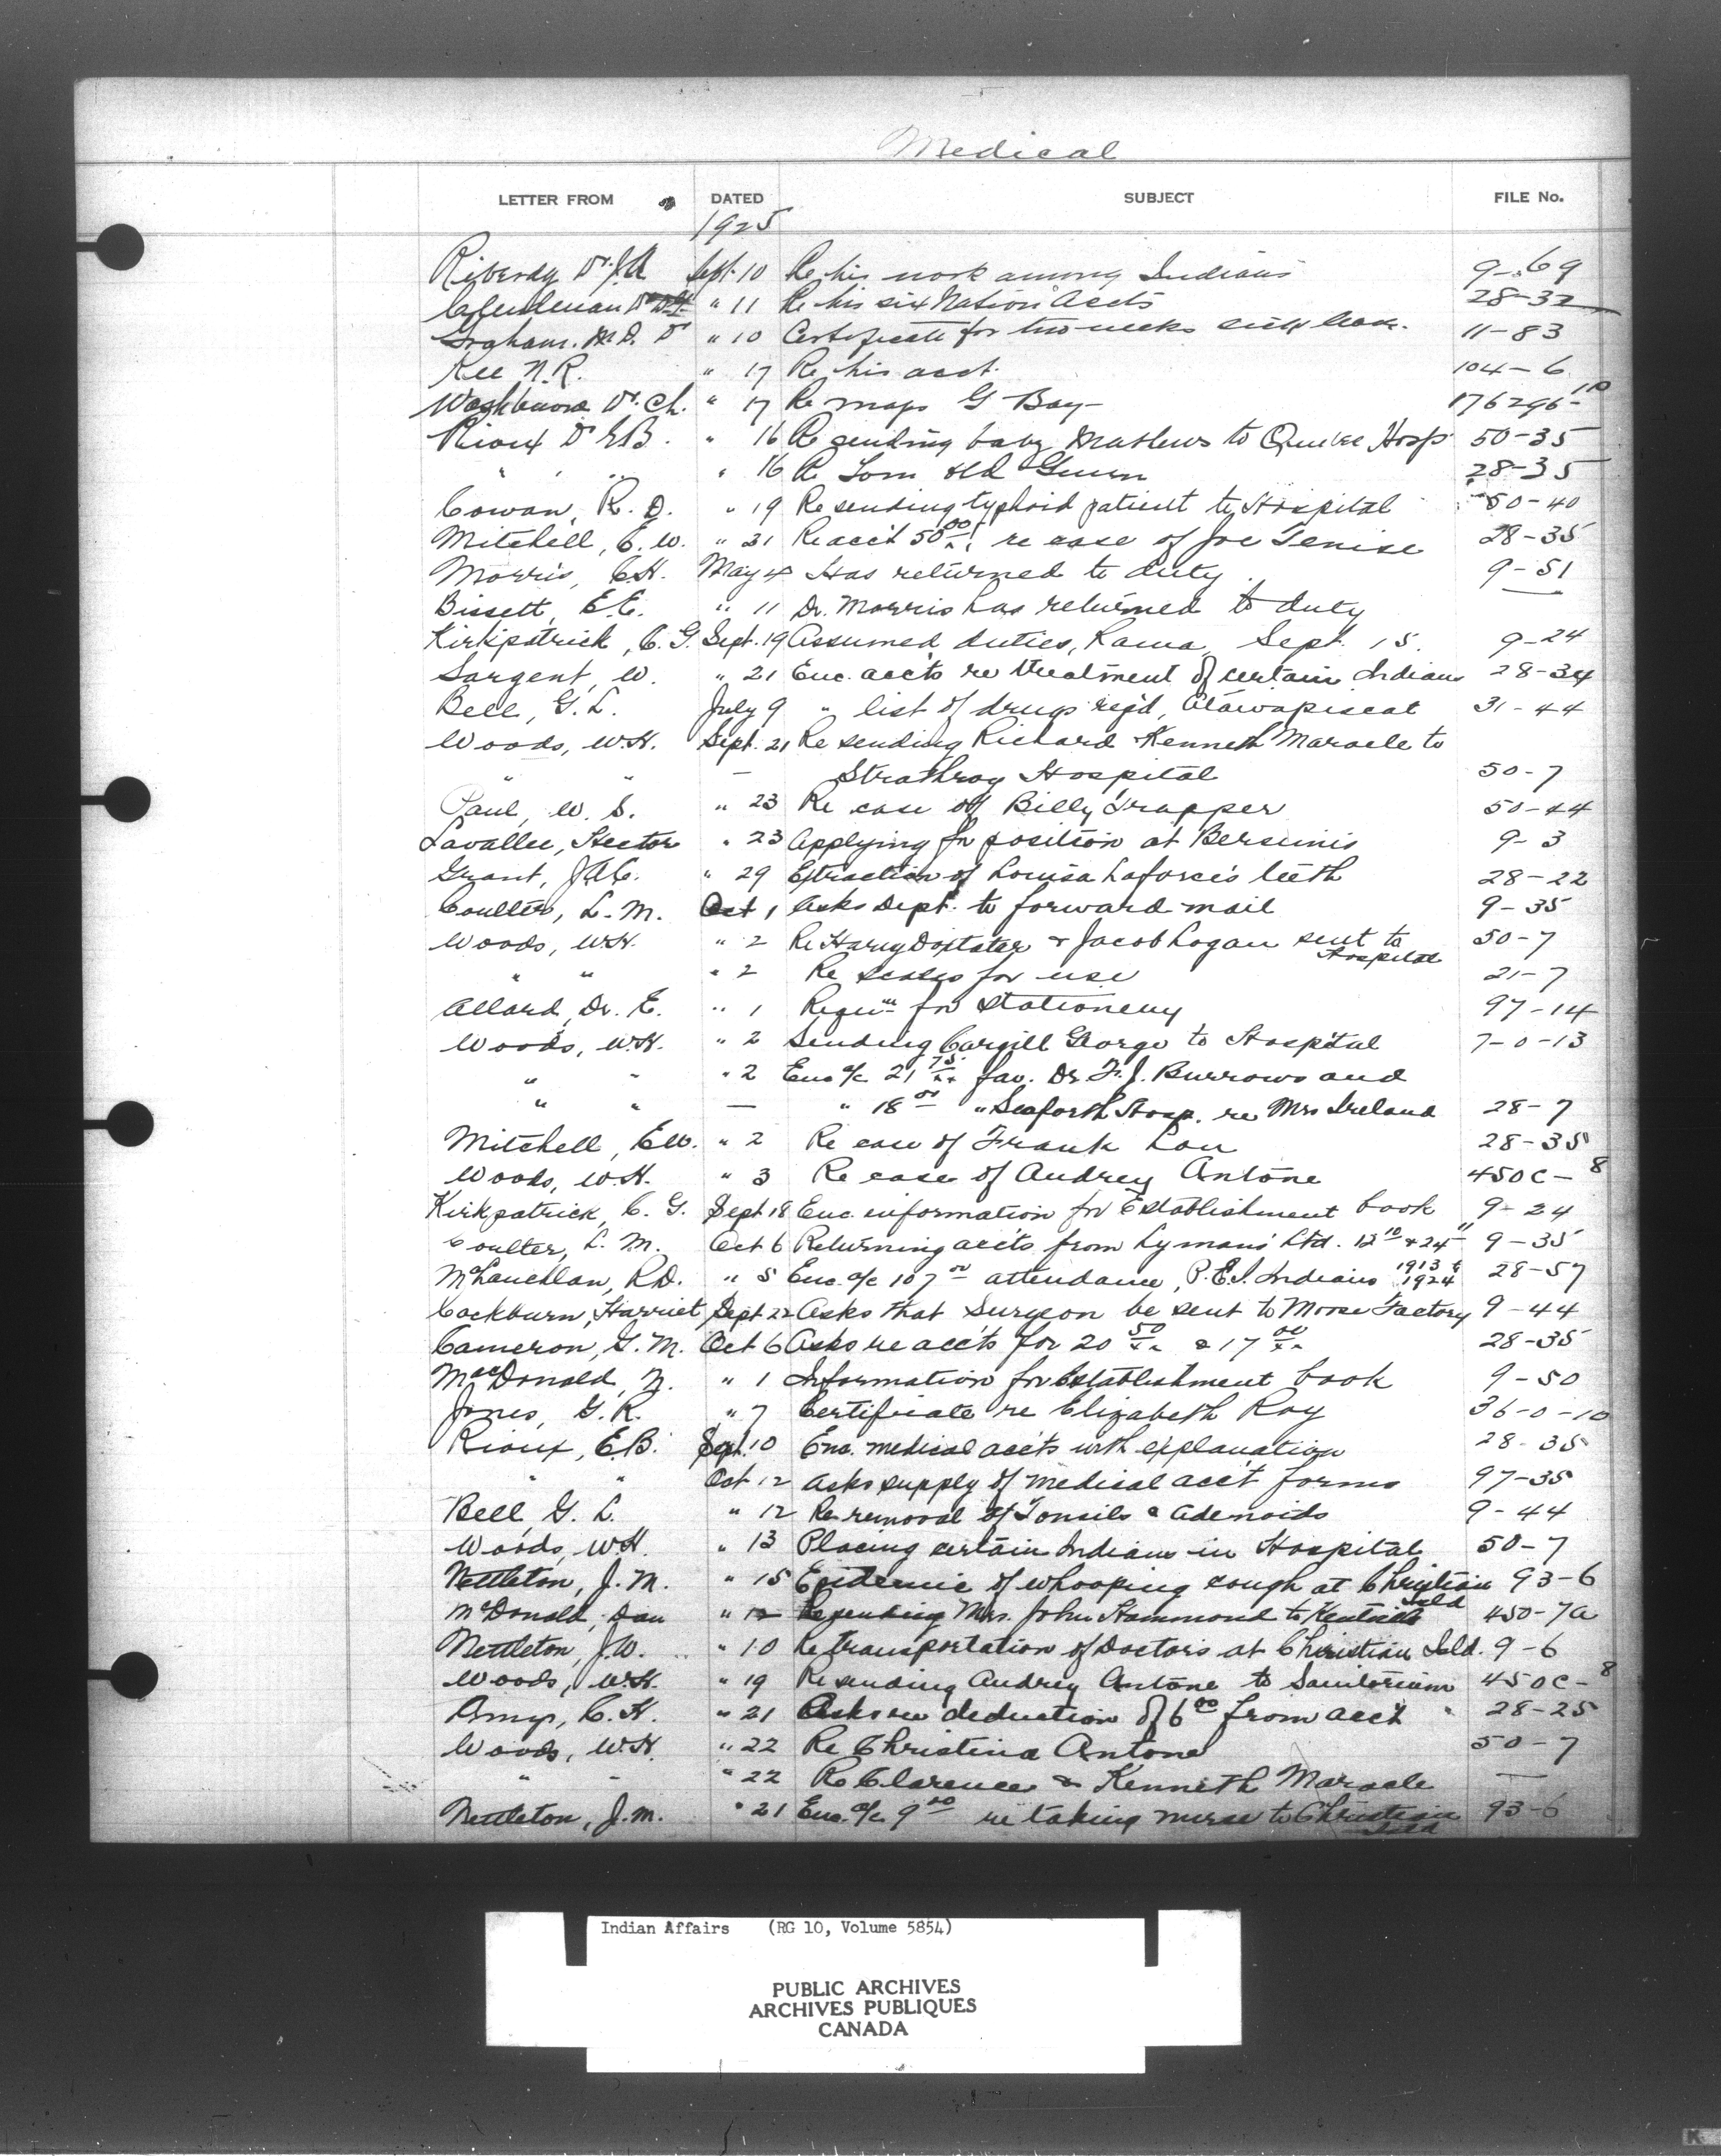 Medical
LETTER FROM DATED SUBJECT FILE No.
1925
Dr. J.A Sept. 10 Re his work among Indians 9-69
Dr " 11 Re his six Nation accts 28-32
Graham. M.D. Dr " 10 Certificate for two weeks sick leave. 11-83
Kee N.R. " 17 Re his acct. 104-6
Dr. Ch. " 17 Re maps G Bay 176296-
Rioux Dr E.B. " 16 Re sending baby Mathews to Quebec Hosp 50-35
" " " " 16 Re Tom 28-35
Cowan, R. D. " 19 Re sending typhoid patient to Hospital 50-40
Mitchell, E. W. " 21 Re acc't 50 00/xx re case of Joe Tenise 28-35
Morris, C.H. May 4 Has returned to duty. 9-51
Bissett, E.E. " 11 Dr. Morris has returned to duty —
Kirkpatrick, C. G. Sept. 19 Assumed duties, Rama, Sept. 15. 9-24
Sargent, W. " 21 Enc. accts re treatment of certain Indians 28-34
Bell, G. L. July 9 " list of drugs req'd, Atawapiscat 31-44
Woods, W.H. Sept. 21 Re sending Richard & Kenneth Maracle to
" " — Strathroy Hospital 50-7
Paul, W. S. " 23 Re case of Billy Trapper 50-44
Lavallee, Hector " 23 Applying for position at Bersimis 9-3
Grant, J.A.C. " 29 Extraction of Louisa Laforce's teeth 28-22
Coulter, L. M. Oct 1 Asks Dept. to forward mail 9-35
Woods, W.H. " 2 Re Harry Doxtater & Jacob Logan sent to 50-7
Hospital
" " " 2 Re scales for use 21-7
Allard, Dr. E. " 1 Requ'n for stationery 97-14
Woods, W.H. " 2 Sending Cargill George to Hospital 7-0-13
" " " 2 Enc a/c 21 75/xx fav. Dr. F. J. Burrows and
" " — " 18 00 " Seaforth Hosp. re Mrs Ireland 28-7
Mitchell, E.W. " 2 Re case of Frank 28-35
Woods, W.H. " 3 Re case of Audrey Antone 450C-8
Kirkpatrick, C. G. Sept 18 Enc. information for Establishment book 9-24
Coulter, L. M. Oct 6 Returning acc'ts from Lymans' Ltd. 12 10 & 24 9-35
McLauchlan, R.D. " 5 Enc. a/c 107 00 attendance, P.E.I. Indians 1913 & 1924 28-57
Cockburn, Harriet Sept 22 Asks that Surgeon be sent to Moose Factory 9-44
Cameron, G. M. Oct 6 Asks re acc'ts for 20 50/xx & 17 00/xx 28-35
MacDonald, N. " 1 Information for Establishment book 9-50
Jones, G. R. " 7 Certificate re Elizabeth Roy 36-0-10
Rioux, E.B. Sept. 10 Enc. medical acc'ts with explanation 28-35
" " Oct 12 Asks supply of medical acc't forms 97-35
Bell, G. L. " 12 Re removal of Tonsils & adenoids 9-44
Woods, W.H. " 13 Placing certain Indians in Hospital 50-7
Nettleton, J. M. " 15 Epidemic of whooping cough at Christian Isld 93-6
McDonald, Dan " 12 Re sending Mrs. John Hammond to Kentville 450-7a
Nettleton, J.W. " 10 Re transportation of Doctors at Christian Isld. 9-6
Woods, W.H. " 19 Re sending Audrey Antone to Sanitorium 450C-8
Amys, C. H. " 21 Asks re deduction of 6 00 from acc't 28-25
Woods, W.H. " 22 Re Christina Antone 50-7
" " " 22 Re Clarence & Kenneth Maracle —
Nettleton, J.M. " 21 Enc. a/c 9 00 re taking nurse to Christian Isld 93-6
Indian Affairs (RG 10, Volume 5854)
PUBLIC ARCHIVES
ARCHIVES PUBLIQUES
CANADA